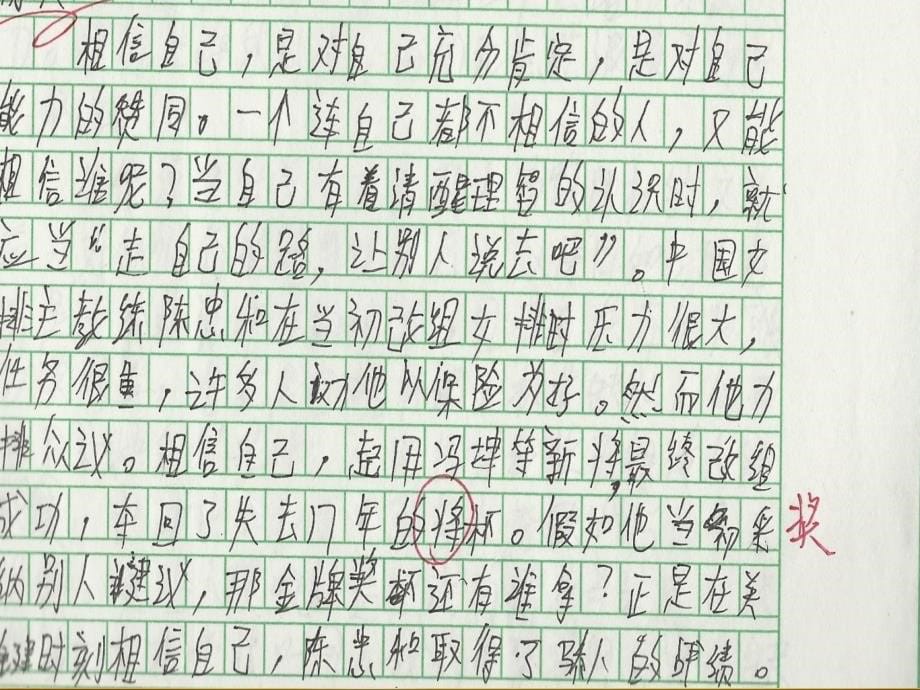 相信自己，是对自己充分肯定，是对自己
能力的赞同。一个连自己都不相信的人，又能
相信谁呢？当自己有着清醒理智的认识时，就
应当“走自己的路，让别人说去吧”。中国女
排主教练陈忠和在当初改组女排时压力很大，
任务很重，许多人劝他以保险为好。然而他力
排众议。相信自己，起用冯坤等新将，最终改组
成功，夺回了失去17年的将杯。假如他当初采 奖
纳别人建议，那金牌奖杯还有谁拿？正是在关
键时刻相信自己，陈忠和取得了骄人的成绩。